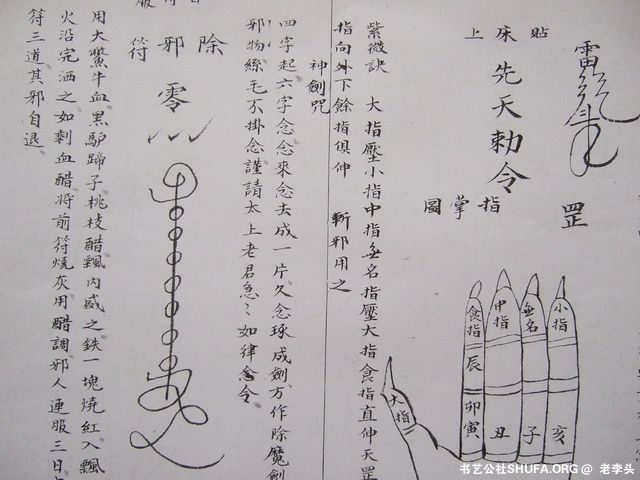 貼床上
雷
先天勅令
罡
指掌圖
小指 亥
無名 子
中指 丑
食指 辰 卯 寅
大指
紫微訣 大指壓小指中指無名指壓大指食指直伸天罡
指向外下餘指俱伸 斬邪用之
神劍咒
四字起六字念念來念去成一片久念琢成劍方作除魔劍
邪物絲毛不掛念謹請太上老君急〻如律令
服
除邪符
零
用大鱉牛血黑驢蹄子桃枝醋瓢內盛之鉄一塊燒紅入瓢
火沿完洒之如剩血醋將前符燒灰用醋調邪人連服三日
符三道其邪自退
书艺公社SHUFA.ORG @ 老李头